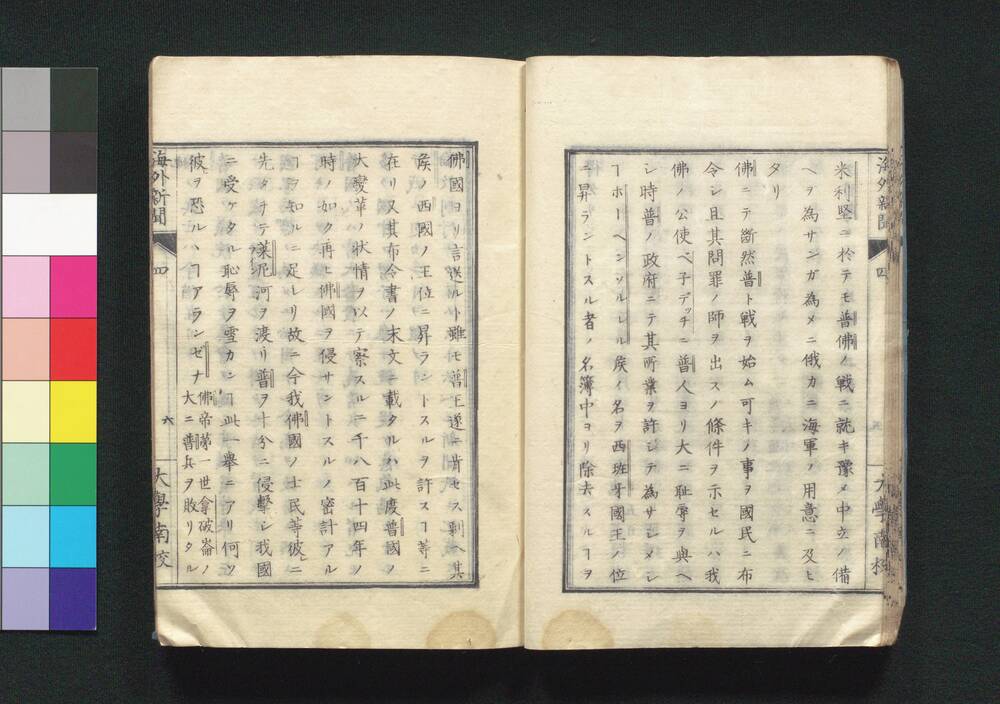 海外新聞
四
米利堅ニ於テモ普佛ノ戰ニ就キ豫メ中立ノ備
ヘヲ為サンガ為メニ俄カニ海軍ノ用意ニ及ヒ
タリ
佛ニテ斷然普ト戰ヲ始ム可キノ事ヲ國民ニ布
令シ且其問罪ノ師ヲ出スノ條件ヲ示セルハ我
佛ノ公使ベ子デッチニ普人ヨリ大ニ耻辱ヲ與ヘ
シ時普ノ政府ニテ其所業ヲ許シテ為サシメシ
ヿホーヘンソルレルレ侯イ名ヲ西班牙國王ノ位
ニ昇ラントスル者ノ名簿中ヨリ除去スルヿヲ
佛國ヨリ言送ルト雖モ普王遂ニ肯セス剰ヘ其
矦ノ西國ノ王位ニ昇ラントスルヲ許スヿ等ニ
在リ又其布令書ノ末文ニ載タルハ此度普國ノ
大變革ノ狀情ヲ以テ察スルニ千八百十四年ノ
時ノ如ク再ヒ佛國ヲ侵サントスルノ密計アル
ヿヲ知ルニ足レリ故ニ今我佛國ノ士民等彼ニ
先タチテ萊尼河ヲ渡リ普ヲ十分ニ侵擊シ我國
ニ受ケタル恥辱ヲ雪カンヿ此一擧ニアリ何ソ
彼ヲ恐ルヽヿアランゼナ
佛帝第一世拿破崙ノ
大ニ普兵ヲ敗リタル
海外新聞
四
六
大學南校